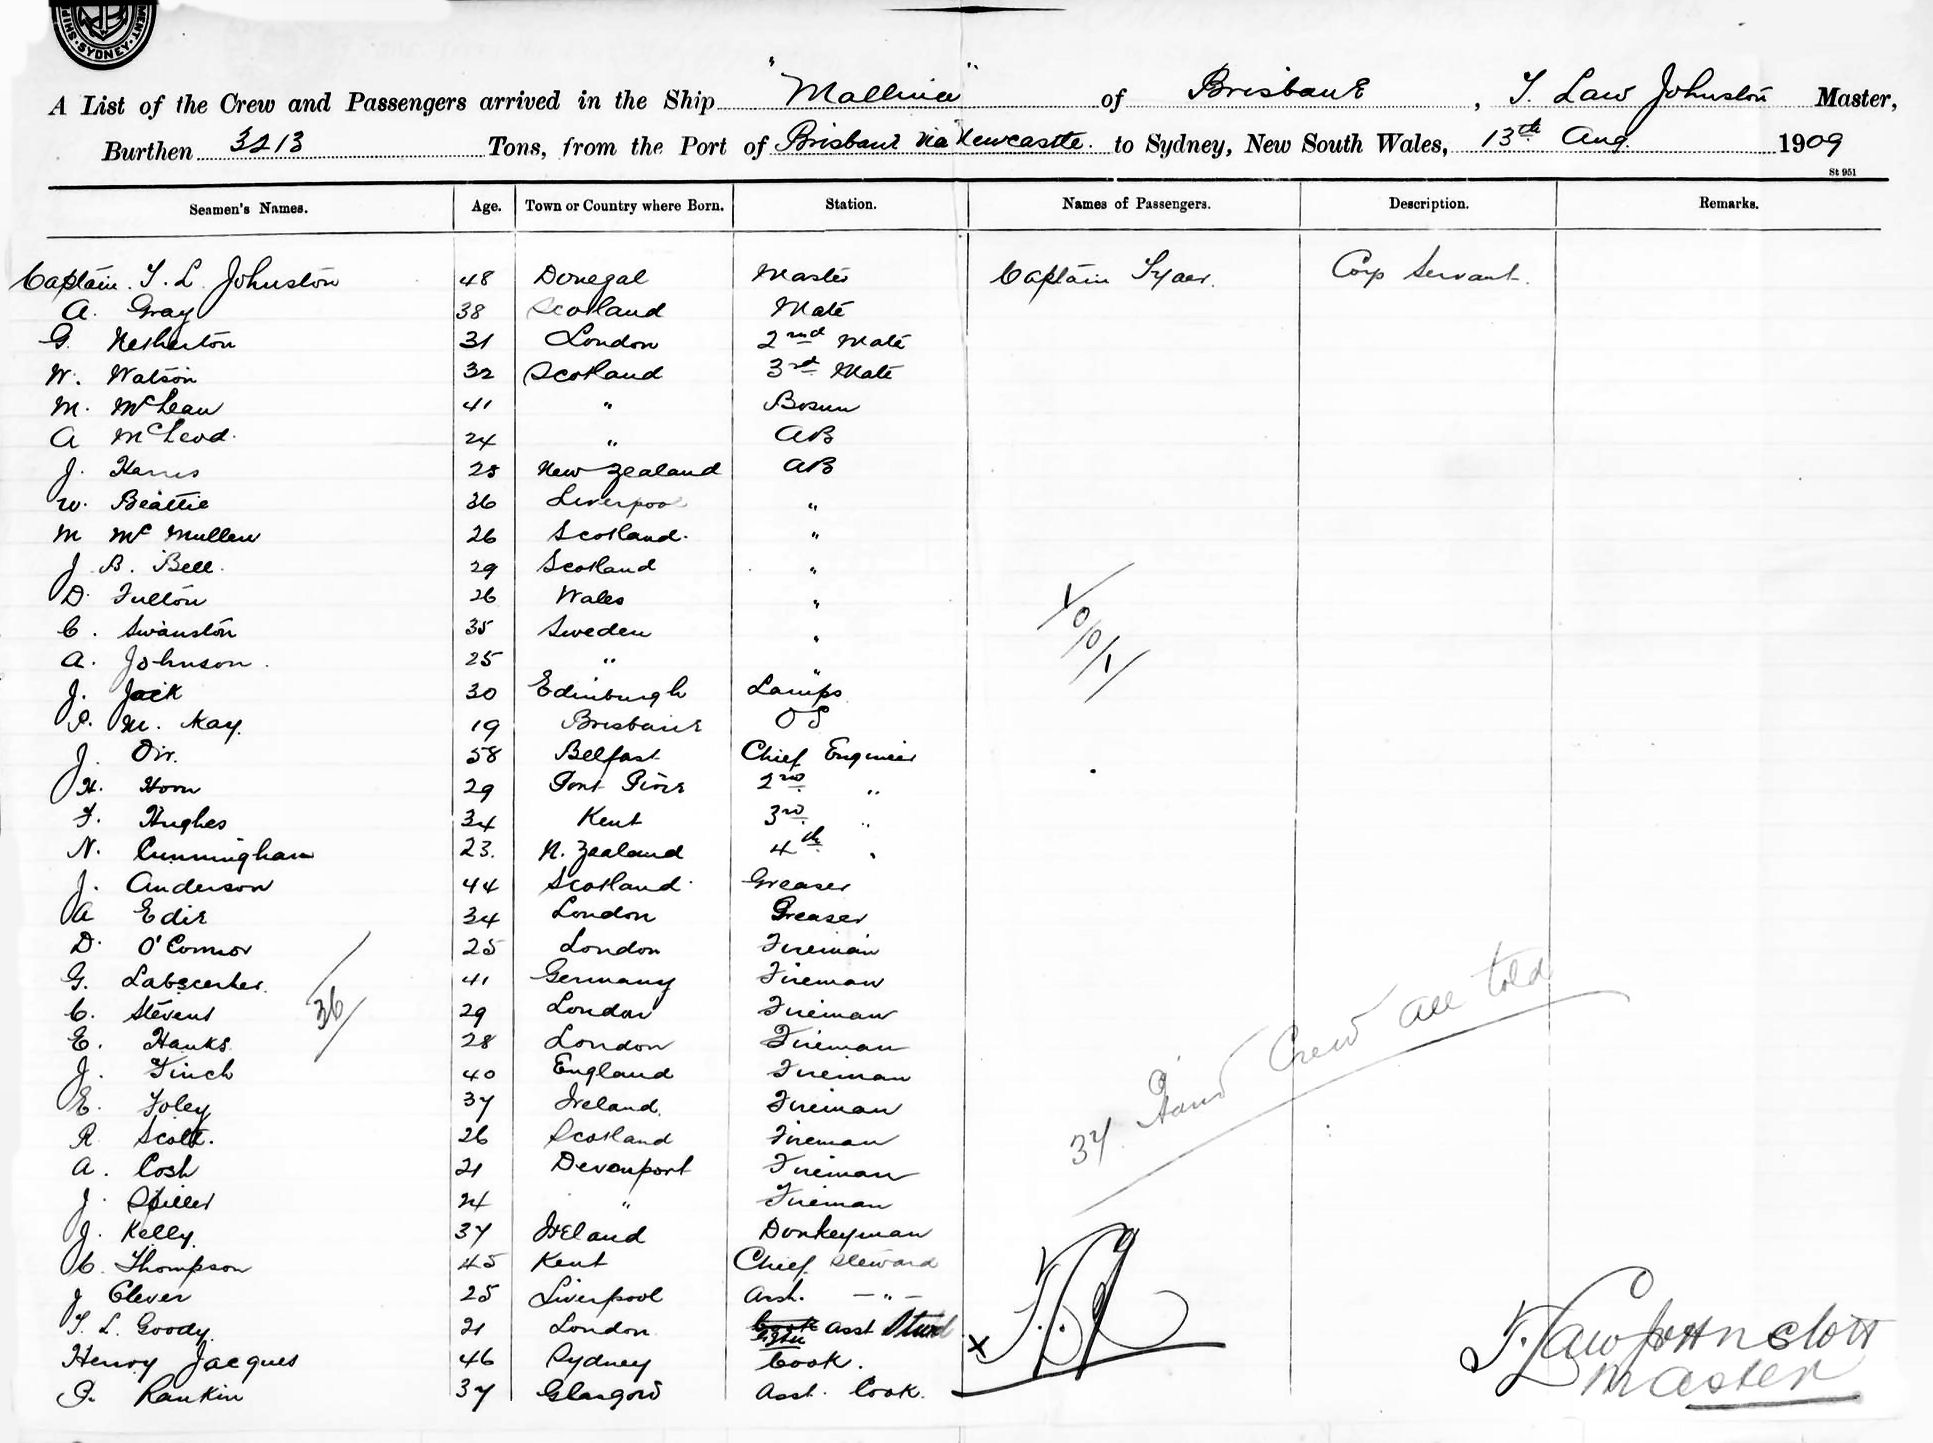 SYDNEY
A List of the Crew and Passengers arrived in the Ship "Mallina" of Brisbane, T. Law Johnston Master,
Burthen 3213 Tons, from the Port of Brisbane via Newcastle. to Sydney, New South Wales, 13th Aug. 1909
St 951
Seamen's Names. Age. Town or Country where Born. Station. Names of Passengers. Description. Remarks.
Captain. T. L. Johnston 48 Donegal Master Captain Corp Servant.
A. Gray 38 Scotland Mate
G. Netherton 31 London 2nd Mate
W. Watson 32 Scotland 3rd Mate
M. McLean 41 " Bosun
A McLeod. 24 " AB
J. Harris 28 New Zealand AB
W. Beattie 36 Liverpool "
M McMullen 26 Scotland. "
J. B. Bell. 29 Scotland "
D. Fulton 26 Wales "
C. Swanston 35 Sweden "
A. Johnson. 25 " "
J. Jack 30 Edinburgh Lamps
P. M. Kay. 19 Brisbane OS
J. Orr. 58 Belfast Chief Engineer
H. Hoon 29 Port Pirie 2nd "
F. Hughes 34 Kent 3rd "
N. Cunningham 23. N. Zealand 4th "
J. Anderson 44 Scotland. Greaser
A Edie 34 London Greaser
D. O'Connor 25 London Fireman
G. 41 Germany Fireman
C. Stevens 29 London Fireman
36
E. Hanks. 28 London Fireman
J. Finch 40 England Fireman
E. Foley 37 Ireland. Fireman
R Scott. 26 Scotland Fireman
A. Cosh 21 Devonport Fireman
J. Spiller 24 " Fireman
J. Kelly. 37 Ireland Donkeyman
C. Thompson 45 Kent Chief Steward
J Clever 25 Liverpool Asst. — " —
T. L. Goody. 21 London Asst Stewd
Henry Jacques 46 Sydney Cook.
P. Rankin 37 Glasgow Asst. Cook.
1/0/0/1/
37 Hand Crew all told
X
T. Law Johnston
Master